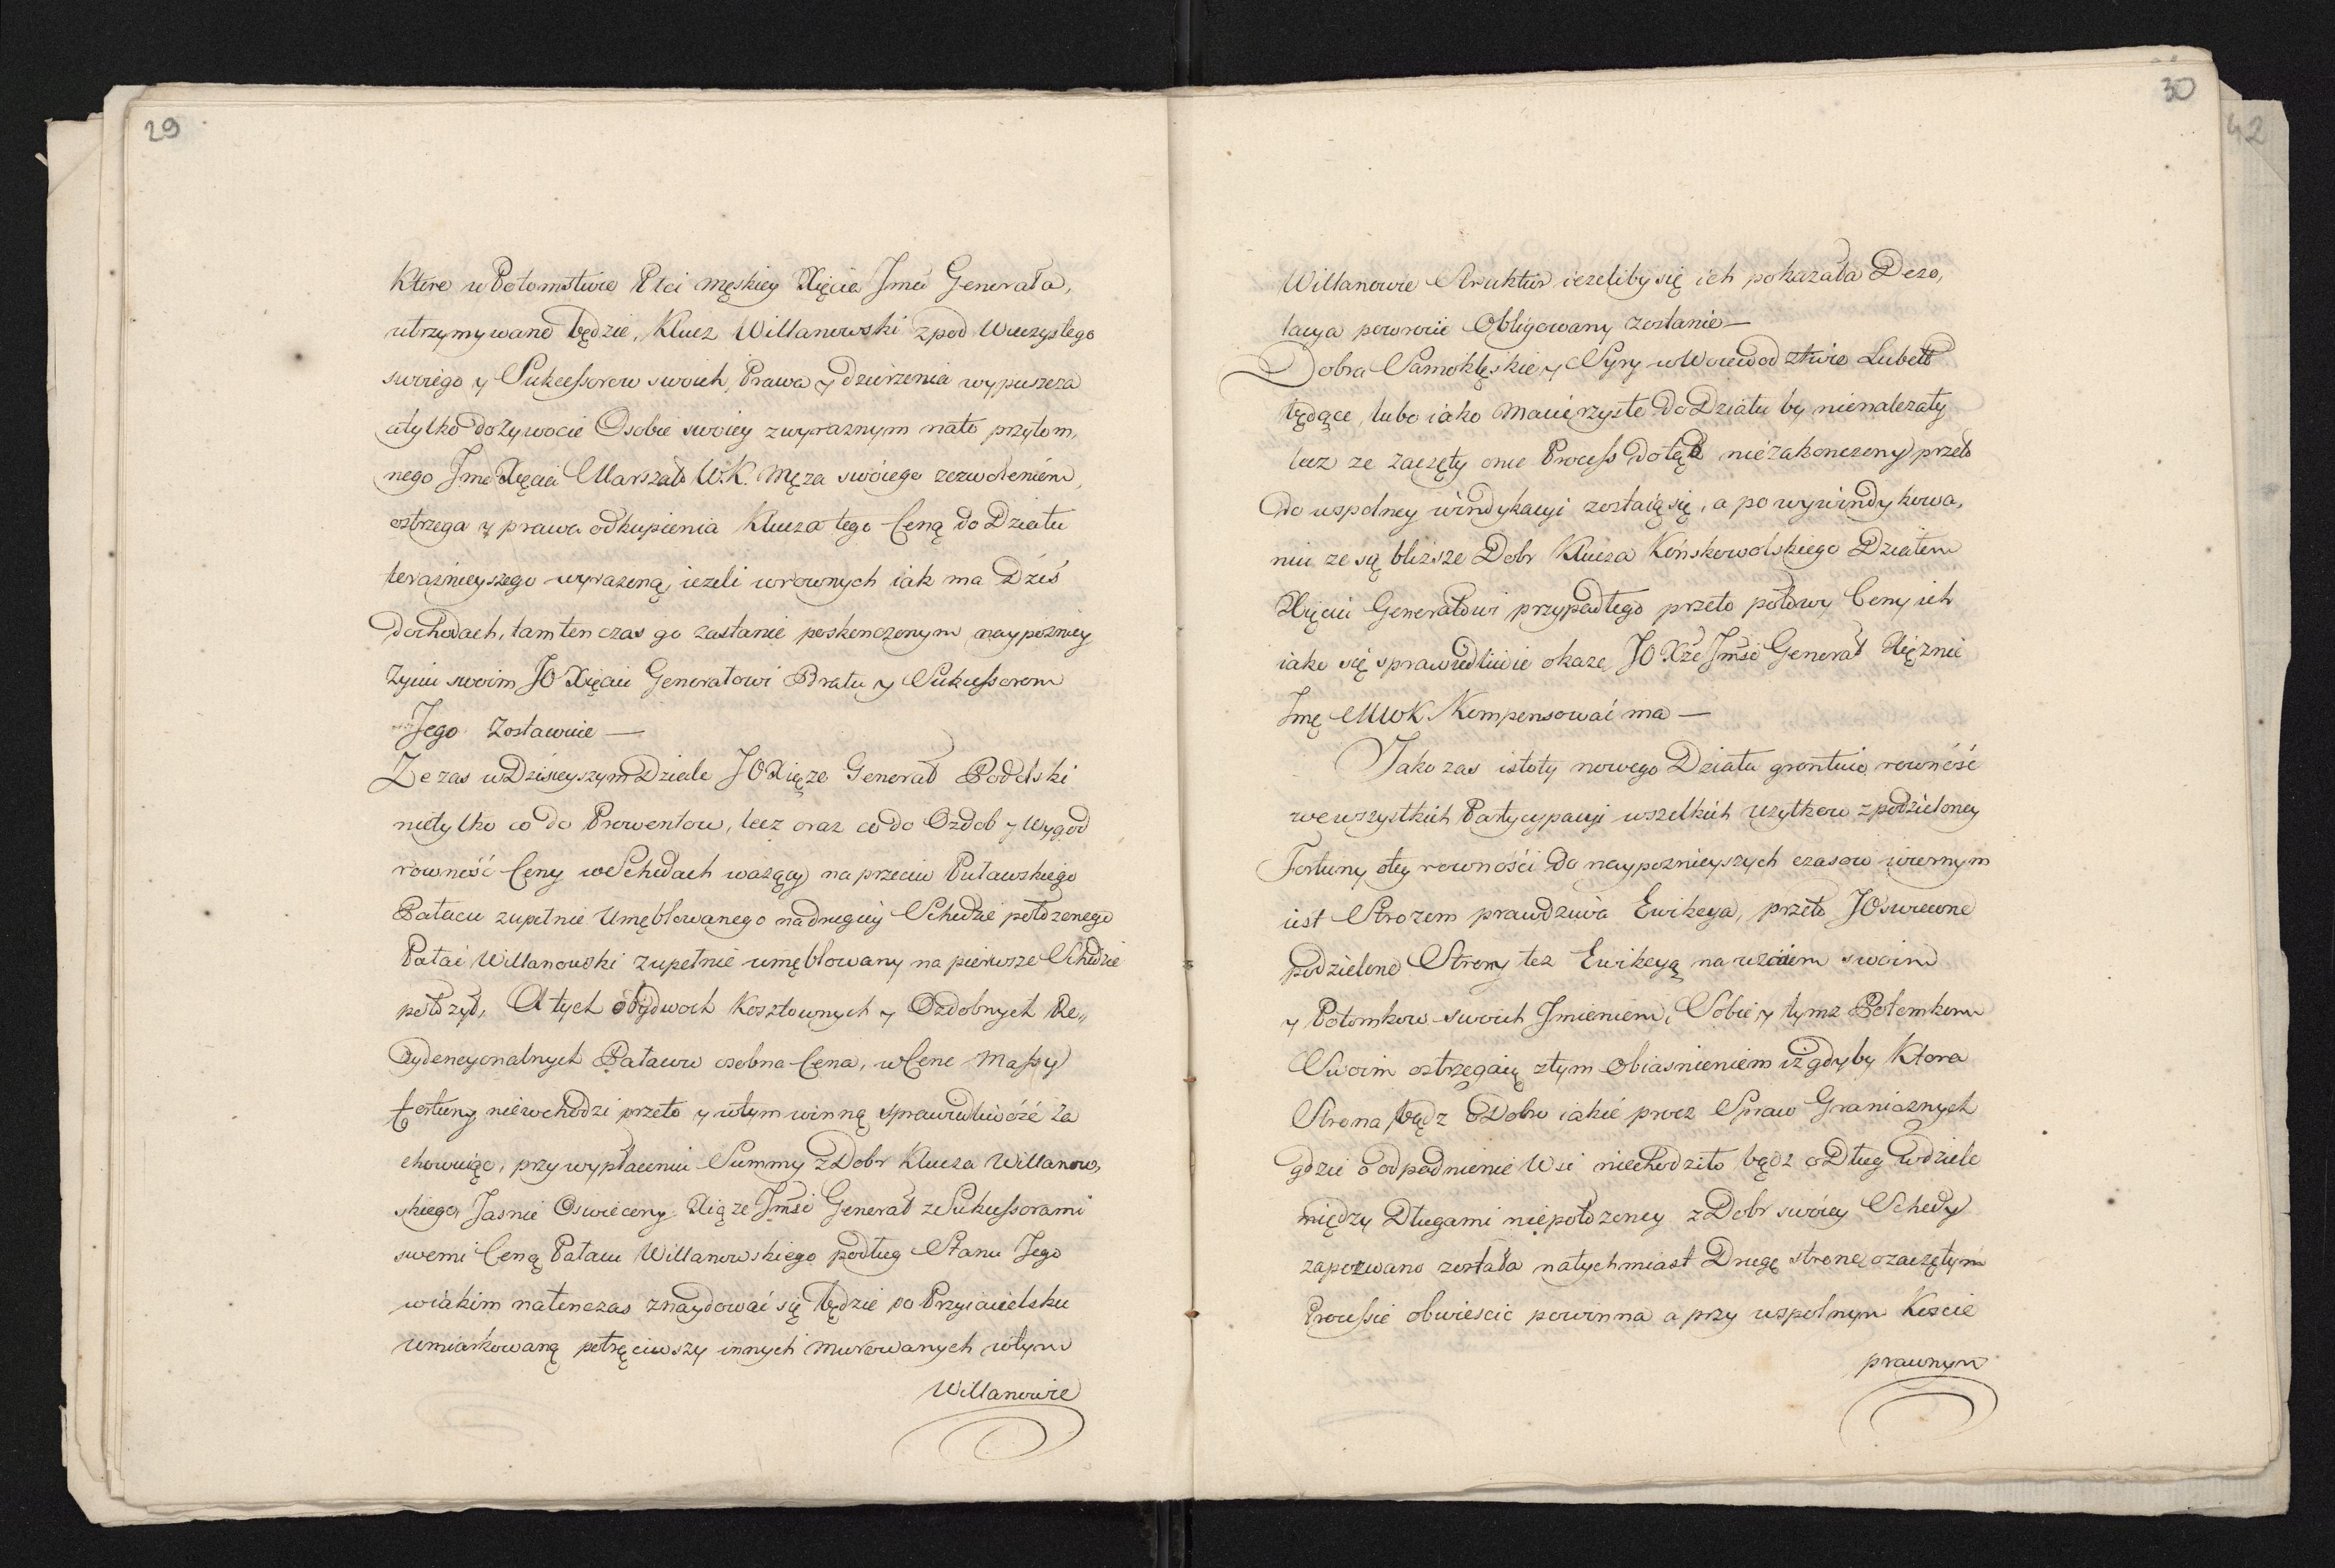 29
Które w Potomstwie Płci męskiey Xięcia Jmci Generała,
utrzymywane będzie, Klucz Willanowski zpod Wieczystego
swoiego y Sukcessorow swoich, Prawa y dzierzenia wypuszcza
atylko dożywocie Osobie swoiey zwyraznym nato przytom,
nego Jmci Xięcia Marszał: W.K. Męza swóiego zezwoleniem,
ostrzega y prawa odkupienia Klucza tego Ceną do Działu
teraźnieyszego wyrazeną, iezeli wrownych iak ma Dziś
dochodach, tam ten czas go zastanie poskończonym naypozniey
życiu swoim JO Xięciu Generałowi Bratu y Sukcessorom
Jego zostawuie —
Ze zas w Dzisieyszym Dziele JO Xięze Generał Podolski
nietylko co do Prowentow, lecz oraz co do Ozdob y Wygod
rowność Ceny we Schedach ważący na przeciw Puławskiego
Pałacu zupełnie Umęblowanego nadrugiey Schedzie połozonego
Pałac Willanowski zupełnie umęblowany na pierwsze Schedzie
położył, A tych obydwoch Kosztownych y Ozdobnych Re,,
zydencyonalnych Pałacow osobna Cena, w Cene Massy
fortuny niewchodzi przeto y wtym winną sprawiedliwość za
chowuiąc, przy wypłaceniu Summy z Dobr Klucza Willanow,
skiego, Jasnie Oswiecony Xiąze Jmsć Generał ze Sukcessorami
swemi Ceną Pałacu Willanowskiego podług Stanu Jego
wiakim natenczas znaydować się będzie po Przyiacielsku
umiarkowaną potrąciwszy innych murowanych wtym
Willanowie
30
42
Willanowie Struktur iezeliby się ich pokazała Dezo,
lacya powrocić Obligowany zostanie —
Dobra Samoklęskie y Syry w Woiewodztwie Lubell
będące, lubo iako Macierzyste do Działu by nienalezały
lecz ze zaczęty onie Process dotąd niezakonczony przeto
do wspolney windykacyi zostaią się, a po wywindykowa,
niu ze są bliższe Dobr Klucza Końskowolskiego Działem
Xięciu Generałowi przypadłego przeto połowę Ceny ich
iake się sprawiedliwie okaze, JO Xże Jmsć Generał Xięznie
Jmę MWK Kompensować ma —
Jako zas istoty nowego Działu grontuie rowność
we wszystkich Partycypacyi wszelkich uzytkow z podzieloney
Fortuny otey rowności do naypoznieyszych czasow wiernym
iest Strozem prawdziwa Ewikcya, przeto JOswiecone
podzielone Strony tez Ewikcyą nawzaiem swoim
y Potomkow swoich Jmieniem, Sobie y tymz Potomkom
Swoim ostrzegaią ztym obiasnieniem iż gdyby Ktora
Strona bądz o Dobra iakie precz Spraw Granicznych
gdzie o odpadnienie Wsi niechodziło bądz o Dług wdziele
między Długami niepołozoney z Dobr swóiey Schedy
zapozwano została natychmiast Drugę strone o zaczętym
Processie obwiescic powinna a przy wspolnym Koscie
prawnym